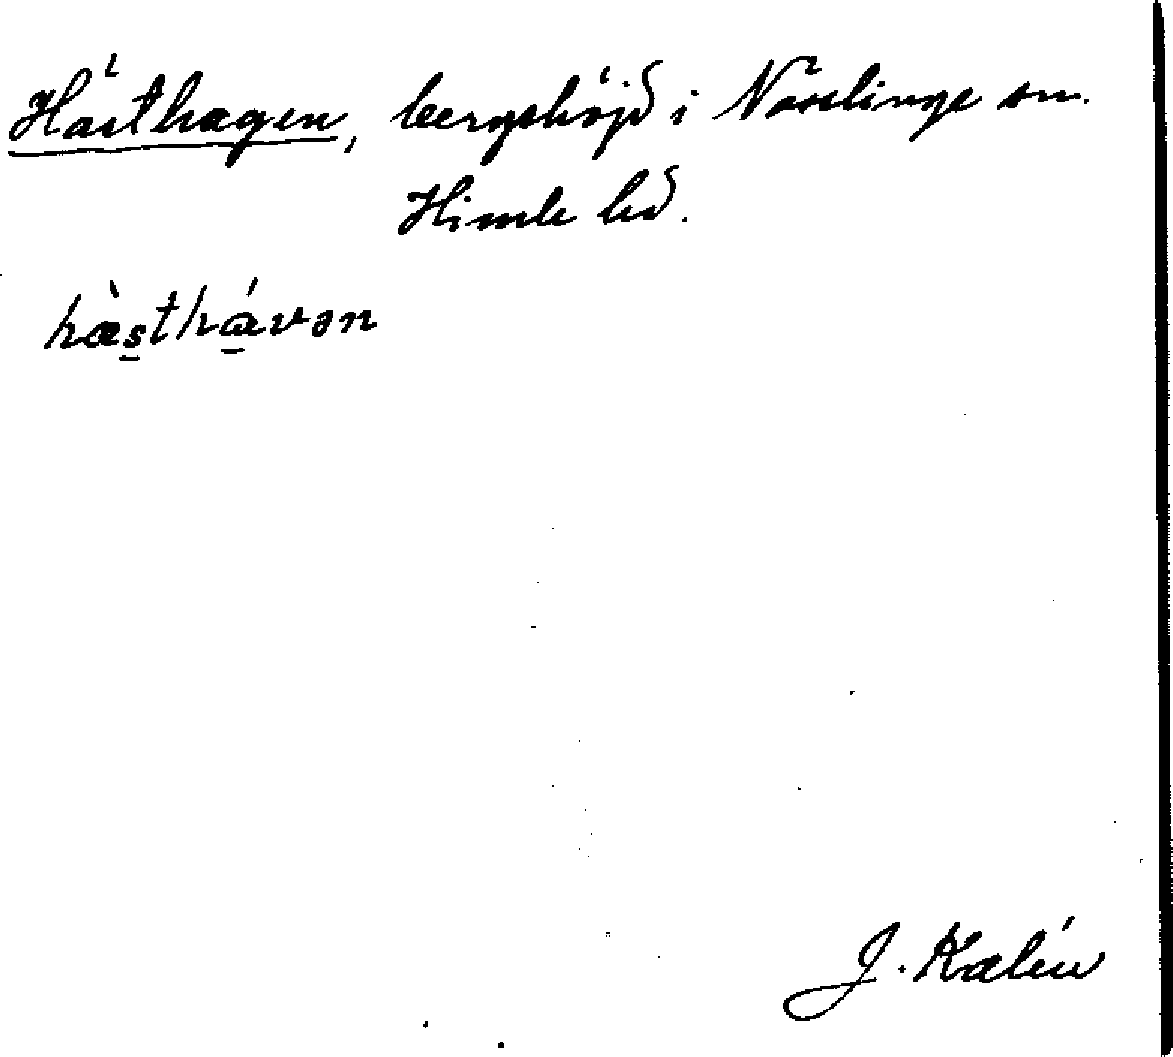 Hästhagen, bergshöjd i Nösslinge sn.
Himle hd.
hæ̀sthávən
J. Kalén